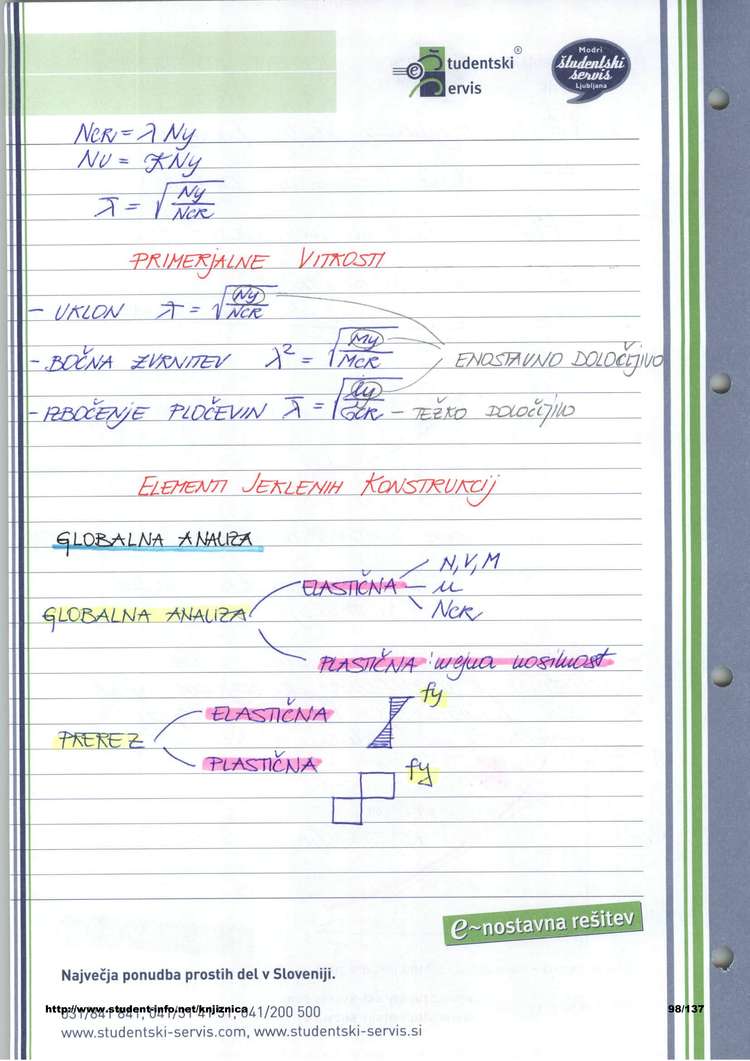 Študentski Servis ®
Modri študentski servis Ljubljana
NCR1 = λ Ny
NU = χ Ny
λ̄ = √(Ny/NCR)
PRIMERJALNE VITKOSTI
- UKLON λ̄ = √(Ny/NCR)
- BOČNA ZVRNITEV λ² = √(My/MCR) ENOSTAVNO DOLOČLJIVO
- IZBOČENJE PLOČEVIN λ̄ = √(fy/σCR) - TEŽKO DOLOČLJIVO
ELEMENTI JEKLENIH KONSTRUKCIJ
GLOBALNA ANALIZA
N, V, M
ELASTIČNA - u
GLOBALNA ANALIZA NCR
PLASTIČNA : mejna nosilnost
fy
ELASTIČNA
PREREZ
PLASTIČNA fy
e~nostavna rešitev
Največja ponudba prostih del v Sloveniji.
http://www.student-info.net/knjiznica 98/137
031/841 841, 041/51 41 51, 041/200 500
www.studentski-servis.com, www.studentski-servis.si